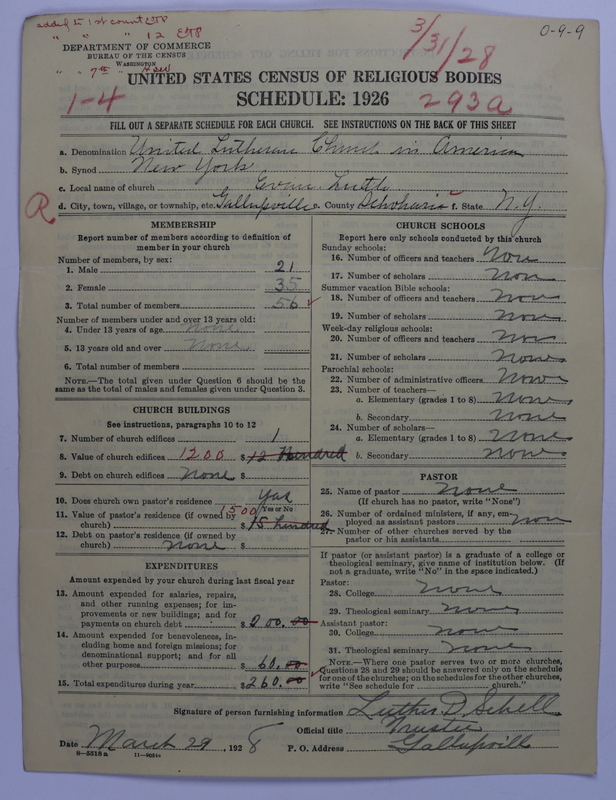 added to 1st count ETB
" " " 12 ETB
" " 7th "
O-9-9
3/31/28
DEPARTMENT OF COMMERCE
BUREAU OF THE CENSUS
WASHINGTON
UNITED STATES CENSUS OF RELIGIOUS BODIES
1-4
SCHEDULE: 1926
293a
FILL OUT A SEPARATE SCHEDULE FOR EACH CHURCH. SEE INSTRUCTIONS ON THE BACK OF THIS SHEET
a. Denomination United Lutheran Church in America
b. Synod New York
c. Local name of church Evan. Luth
R
d. City, town, village, or township, etc. Gallupville e. County Schoharie f. State N.Y.
MEMBERSHIP
Report number of members according to definition of member in your church
Number of members, by sex:
1. Male 21
2. Female 35
3. Total number of members 56 ✓
Number of members under and over 13 years old:
4. Under 13 years of age none
5. 13 years old and over None
6. Total number of members
NOTE.—The total given under Question 6 should be the same as the total of males and females given under Question 3.
CHURCH BUILDINGS
See instructions, paragraphs 10 to 12
7. Number of church edifices 1
8. Value of church edifices 1200 $ 12 Hundred
9. Debt on church edifices None $
10. Does church own pastor's residence Yas
Yes or No
11. Value of pastor's residence (if owned by church) 1500 $ 15 hundred
12. Debt on pastor's residence (if owned by church) None $
EXPENDITURES
Amount expended by your church during last fiscal year
13. Amount expended for salaries, repairs, and other running expenses; for improvements or new buildings; and for payments on church debt $ 200.00
14. Amount expended for benevolences, including home and foreign missions; for denominational support; and for all other purposes $ 60.00
15. Total expenditures during year $ 260.00 ✓
CHURCH SCHOOLS
Report here only schools conducted by this church
Sunday schools:
16. Number of officers and teachers Non
17. Number of scholars Non
Summer vacation Bible schools:
18. Number of officers and teachers None
19. Number of scholars Non
Week-day religious schools:
20. Number of officers and teachers Non
21. Number of scholars None
Parochial schools:
22. Number of administrative officers None
23. Number of teachers—
a. Elementary (grades 1 to 8) None
b. Secondary None
24. Number of scholars—
a. Elementary (grades 1 to 8) None
b. Secondary None
PASTOR
25. Name of pastor None
(If church has no pastor, write "None")
26. Number of ordained ministers, if any, employed as assistant pastors non
27. Number of other churches served by the pastor or his assistants
If pastor (or assistant pastor) is a graduate of a college or theological seminary, give name of institution below. (If not a graduate, write "No" in the space indicated.)
Pastor:
28. College None
29. Theological seminary None
Assistant pastor:
30. College None
31. Theological seminary None
NOTE.—Where one pastor serves two or more churches, Questions 28 and 29 should be answered only on the schedule for one of the churches; on the schedules for the other churches, write "See schedule for church."
Signature of person furnishing information Luther D. Schell
Official title Trustee
Date March 29, 1928 P. O. Address Gallupvill
8-5518 a 11-9024a